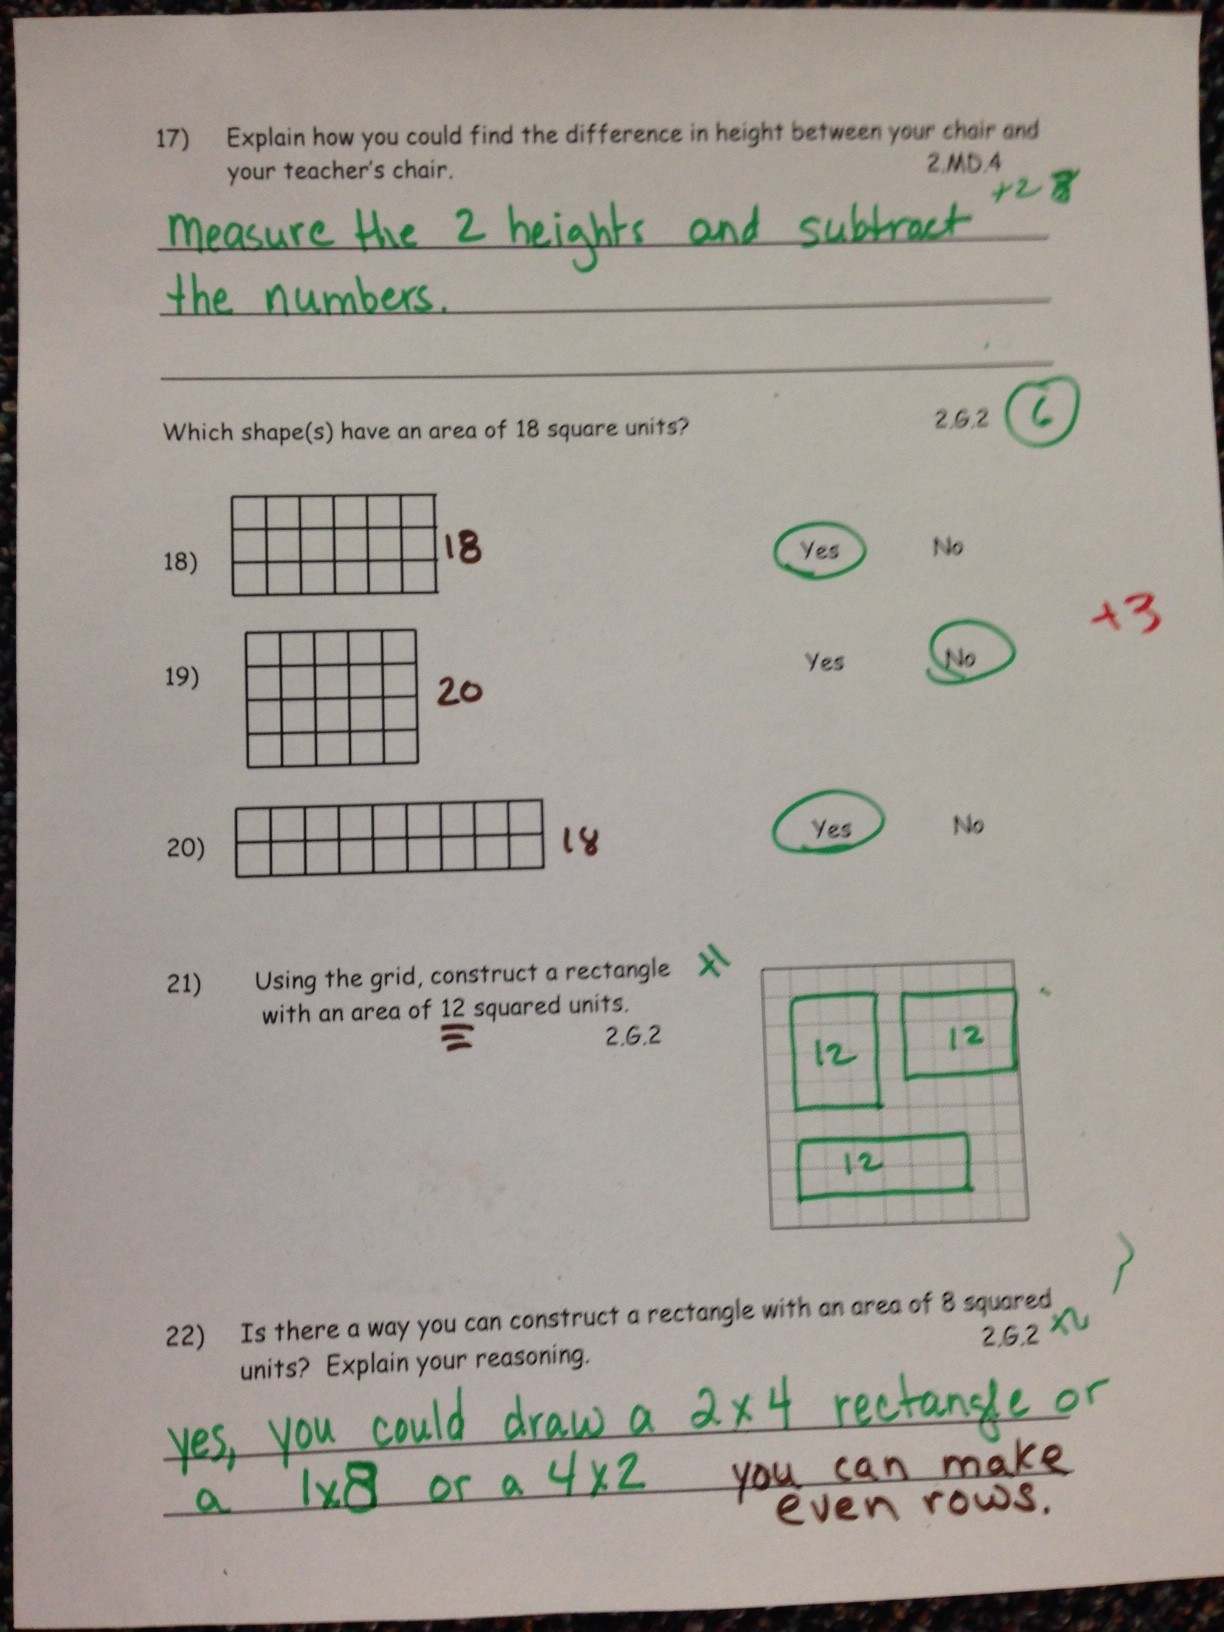 17) Explain how you could find the difference in height between your chair and
your teacher's chair. 2.MD.4
+2
measure the 2 heights and subtract
the numbers.
Which shape(s) have an area of 18 square units? 2.G.2 6
18) 18 Yes No
+3
19) 20 Yes No
20) 18 Yes No
21) Using the grid, construct a rectangle +1
with an area of 12 squared units.
2.G.2
12 12
12
22) Is there a way you can construct a rectangle with an area of 8 squared
units? Explain your reasoning. 2.G.2
yes, you could draw a 2x4 rectangle or
a 1x8 or a 4x2 you can make
even rows.